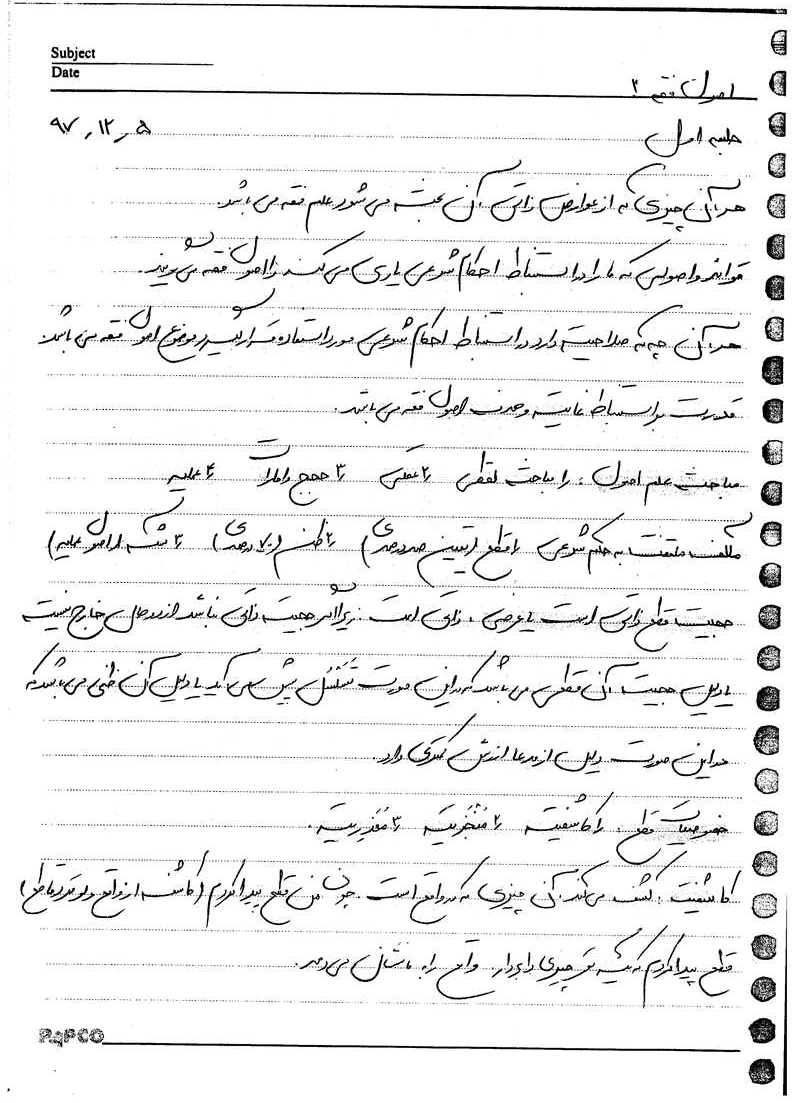 Subject
Date
اصول فقه ۳
جلسه اول ۵ , ۱۲ , ۹۷
هر آن چیزی که از عوارض ذاتی آن بحث می شود علم فقه می باشد.
قواعد و اصولی که ما را در استنباط احکام شرعی یاری می کند را اصول فقه می گویند.
هر آن چه که صلاحیت دارد در استنباط احکام شرعی مورد استفاده قرار گیرد موضوع اصول فقه می باشد.
قدرت بر استنباط غایت و هدف اصول فقه می باشد.
مباحث علم اصول : ۱) مباحث لفظی ۲) عقلی ۳) حجج و امارات ۴) عملیه
مکلف ملتفت به حکم شرعی ۱) قطع (یقین صددرصدی) ۲) ظن (۷۰ درصدی) ۳) شک (اصول عملیه)
حجیت قطع ذاتی است یا عرضی ، ذاتی است زیرا اگر حجیت ذاتی نباشد از دو حال خارج نیست
یا دلیل حجیت آن قطعی می باشد که در این صورت تسلسل پیش می آید یا دلیل آن ظنی می باشد که
در این صورت دلیل از مدعا ارزش کمتری دارد.
خصوصیات قطع : ۱) کاشفیت ۲) منجزیت ۳) معذریت.
کاشفیت : کشف می کند آن چیزی که در واقع است. چون من قطع پیدا کردم (کاشف از واقع ولو عند القاطع)
قطع پیدا کردم که یک چیزی را واقع را به ما نشان می دهد.
PAPCO